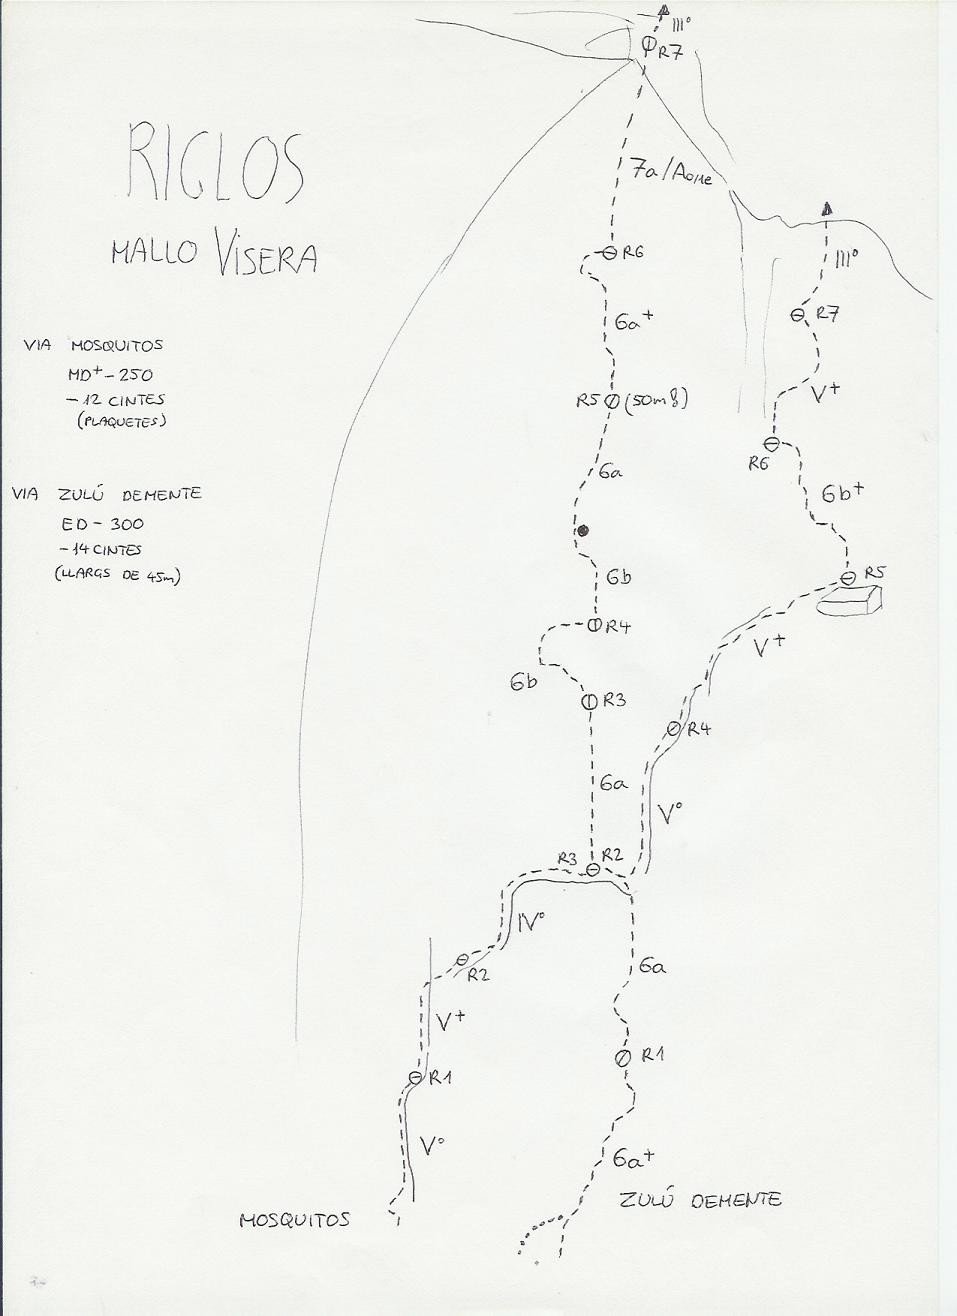 III°
R7
RIGLOS
7a/Ao,1e
MALLO VISERA
R6
III°
6a+
R7
VIA MOSQUITOS
MD+-250
-12 CINTES
(PLAQUETES)
R5 (50m!)
V+
R6
6a
6b+
VIA ZULÚ DEMENTE
ED-300
-14 CINTES
(LLARGS DE 45m)
6b
R5
R4
V+
6b
R3
R4
6a
V°
R3 R2
IV°
R2
6a
V+
R1
R1
V°
6a+
MOSQUITOS
ZULÚ DEMENTE